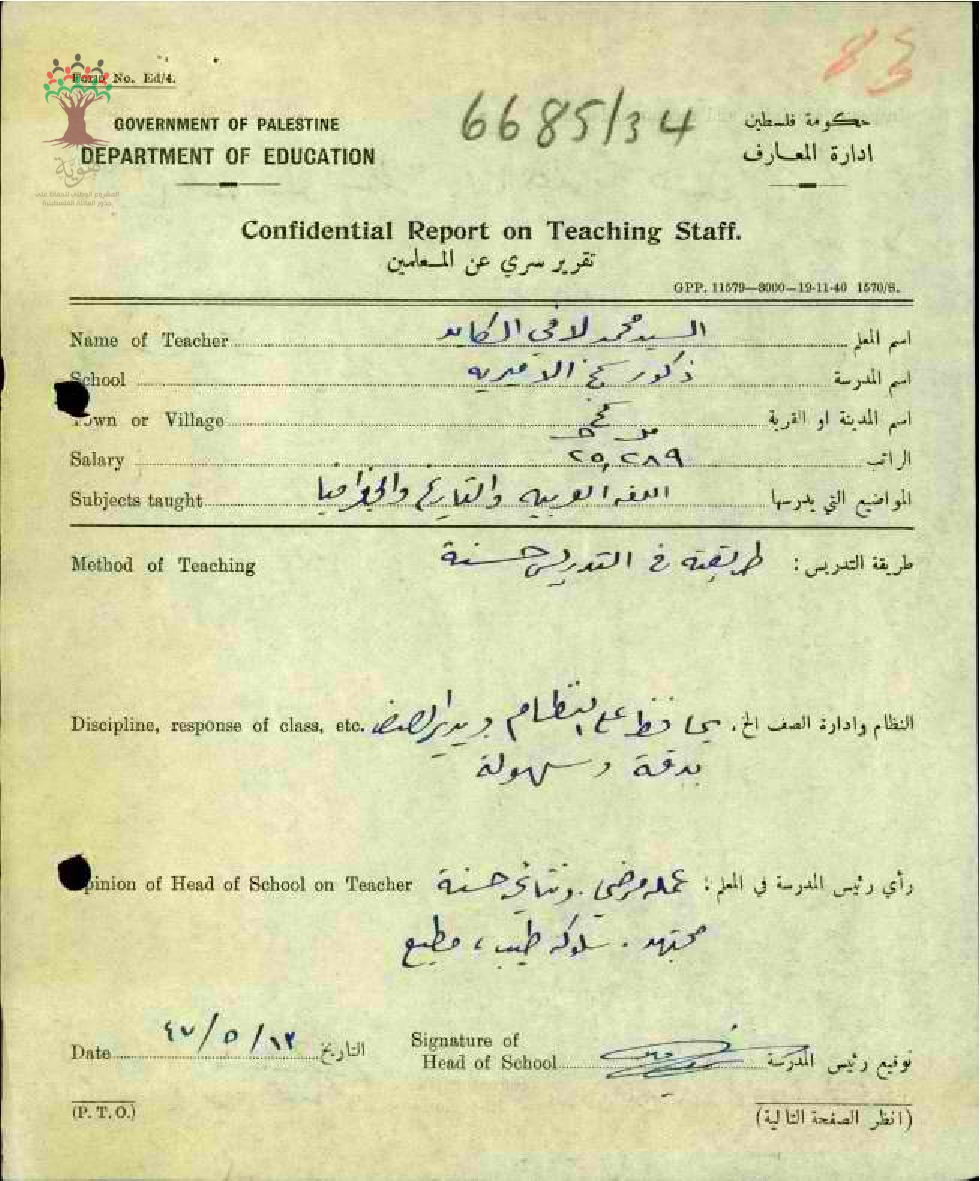 83
Form No. Ed/4.
6685/34
GOVERNMENT OF PALESTINE
حكومة فلسطين
DEPARTMENT OF EDUCATION
ادارة المعارف
هوية
المشروع الوطني للحفاظ على
جذور العائلة الفلسطينية
Confidential Report on Teaching Staff.
تقرير سري عن المعلمين
GPP. 11579—8000—19-11-40 1570/S.
Name of Teacher السيد محمد لافي الكايد اسم المعلم
School ذكور الاميرية اسم المدرسة
Town or Village اسم المدينة او القرية
Salary ٢٥,٢٨٩ الراتب
Subjects taught اللغه العربيه والتاريخ والجغرافيا المواضيع التي يدرسها
Method of Teaching طريقته في التدريس حسنة طريقة التدريس :
Discipline, response of class, etc. يحافظ على النظام ويدير الصف النظام وادارة الصف الخ.
بدقة وسهولة
Opinion of Head of School on Teacher عمله مرضي. ونتائجه حسنة رأي رئيس المدرسة في المعلم :
مجتهد . سلوكه طيب ، مطيع
Date ٤٧/٥/١٣ التاريخ
Signature of
Head of School توقيع رئيس المدرسة
(P. T. O.)
(انظر الصفحة التالية)